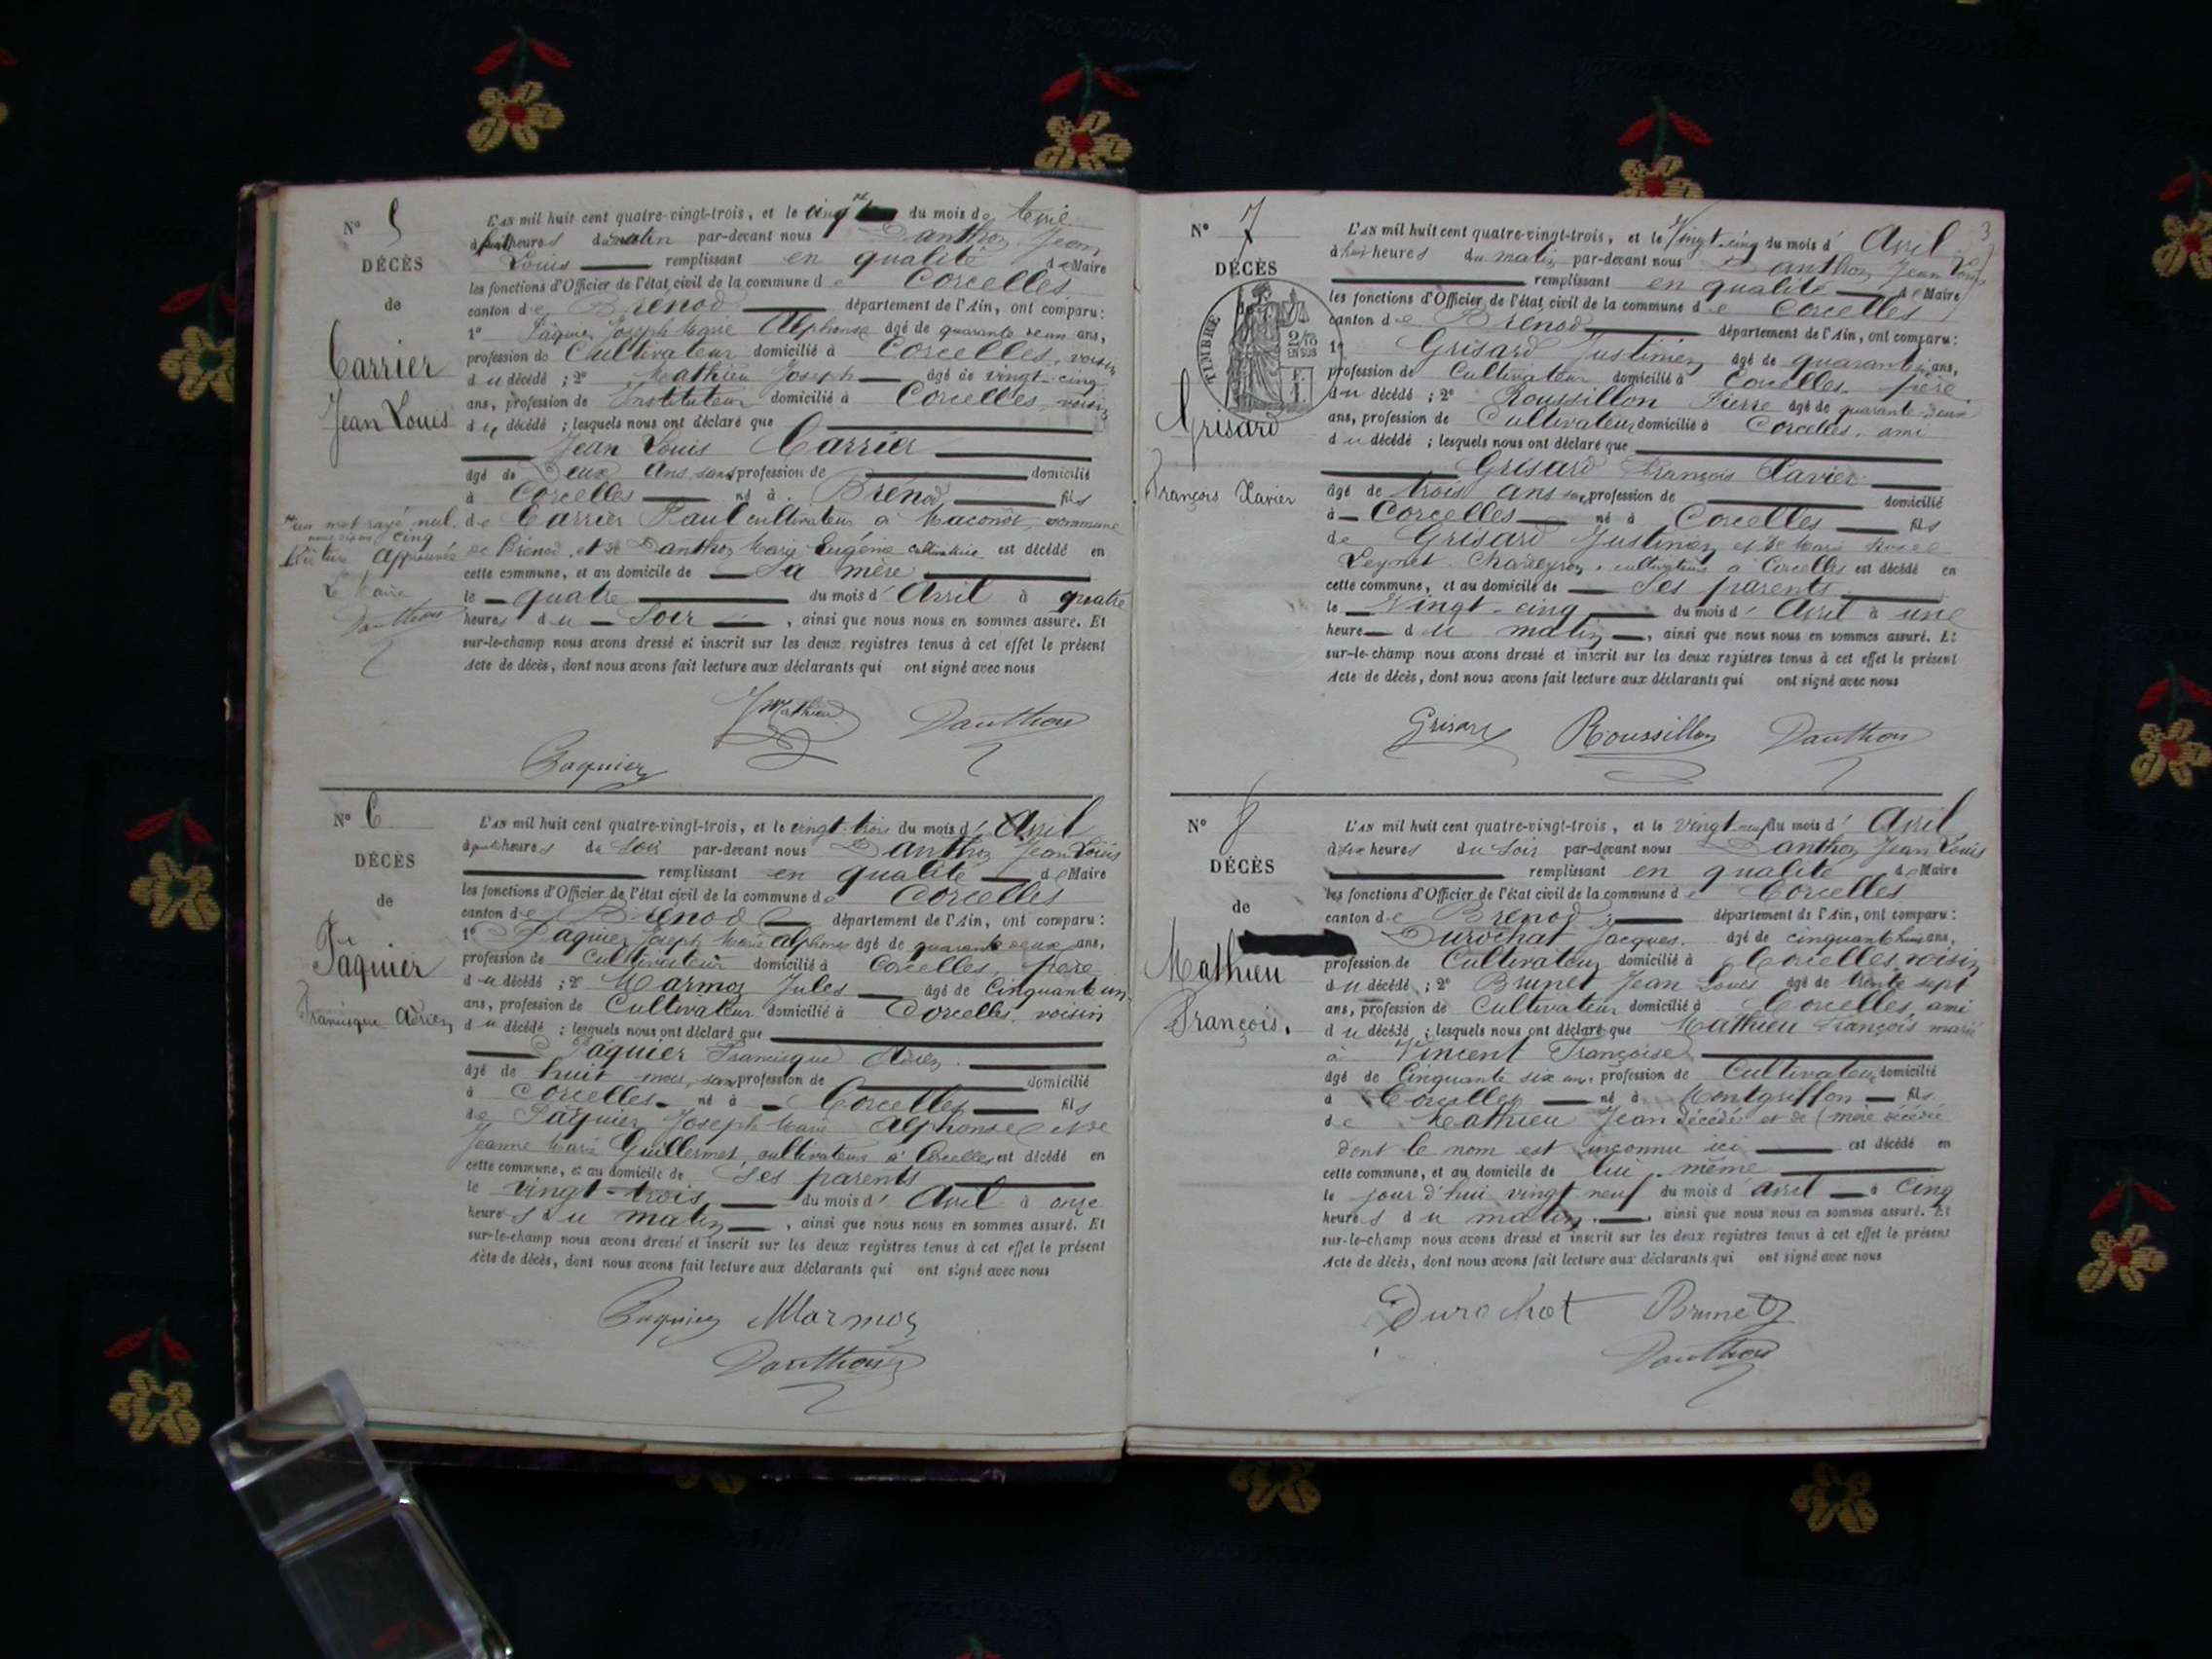 N° 5
DÉCÈS
de
Carrier
Jean Louis
un mot rayé nul.
cinq
approuvée
Le Maire
Danthon
L'AN mil huit cent quatre-vingt-trois, et le cinq du mois de Avril
à heures du matin par-devant nous Danthon Jean
Louis remplissant en qualité de Maire
les fonctions d'Officier de l'état civil de la commune de Corcelles
canton de Brénod département de l'Ain, ont comparu :
1° Pâquier Joseph Marie Alphonse âgé de quarante deux ans,
profession de Cultivateur domicilié à Corcelles, voisin
du décédé ; 2° Mathieu Joseph âgé de vingt-cinq
ans, profession de Instituteur domicilié à Corcelles, voisin
du décédé ; lesquels nous ont déclaré que
Jean Louis Carrier
âgé de Deux ans, sans profession de domicilié
à Corcelles né à Brénod, fils
de Carrier Paul cultivateur à Maconod, commune
de Brénod, et de Danthon Marie Eugénie cultivatrice est décédé en
cette commune, et au domicile de Sa mère
le quatre du mois d'Avril à quatre
heures du Soir, ainsi que nous nous en sommes assuré. Et
sur-le-champ nous avons dressé et inscrit sur les deux registres tenus à cet effet le présent
Acte de décès, dont nous avons fait lecture aux déclarants qui ont signé avec nous
J Mathieu Danthon
Paquier
N° 6
DÉCÈS
de
Pâquier
Francisque Adrien
L'AN mil huit cent quatre-vingt-trois, et le vingt-trois du mois d'Avril
à heures du Soir par-devant nous Danthon Jean Louis
remplissant en qualité de Maire
les fonctions d'Officier de l'état civil de la commune de Corcelles
canton de Brénod département de l'Ain, ont comparu :
1° Pâquier Joseph Marie Alphonse âgé de quarante deux ans,
profession de Cultivateur domicilié à Corcelles, père
du décédé ; 2° Marmon Jules âgé de Cinquante un
ans, profession de Cultivateur domicilié à Corcelles, voisin
du décédé ; lesquels nous ont déclaré que
Pâquier Francisque Adrien
âgé de huit mois, sans profession de domicilié
à Corcelles né à Corcelles fils
de Pâquier Joseph Marie Alphonse et de
Jeanne Marie Guillermet, cultivateurs à Corcelles est décédé en
cette commune, et au domicile de Ses parents
le vingt-trois du mois d'Avril à onze
heures du matin, ainsi que nous nous en sommes assuré. Et
sur-le-champ nous avons dressé et inscrit sur les deux registres tenus à cet effet le présent
Acte de décès, dont nous avons fait lecture aux déclarants qui ont signé avec nous
Paquier Marmon
Danthon
3
N° 7
DÉCÈS
TIMBRE
2/10
EN SUS
Grisard
François Xavier
L'AN mil huit cent quatre-vingt-trois, et le Vingt-cinq du mois d'Avril
à heures du matin par-devant nous Danthon Jean Louis
remplissant en qualité de Maire
les fonctions d'Officier de l'état civil de la commune de Corcelles
canton de Brénod département de l'Ain, ont comparu :
1° Grisard Justinien âgé de quarante ans,
profession de Cultivateur domicilié à Corcelles, père
du décédé ; 2° Roussillon Pierre âgé de quarante-deux
ans, profession de Cultivateur domicilié à Corcelles, ami
du décédé ; lesquels nous ont déclaré que
Grisard François Xavier
âgé de trois ans profession de domicilié
à Corcelles né à Corcelles fils
de Grisard Justinien et de Marie
cultivateurs à Corcelles est décédé en
cette commune, et au domicile de Ses parents
le Vingt-cinq du mois d'Avril à une
heure du matin, ainsi que nous nous en sommes assuré. Et
sur-le-champ nous avons dressé et inscrit sur les deux registres tenus à cet effet le présent
Acte de décès, dont nous avons fait lecture aux déclarants qui ont signé avec nous
Grisard Roussillon Danthon
N° 8
DÉCÈS
de
Mathieu
François.
L'AN mil huit cent quatre-vingt-trois, et le vingt neuf du mois d'Avril
à heures du Soir par-devant nous Danthon Jean Louis
remplissant en qualité de Maire
les fonctions d'Officier de l'état civil de la commune de Corcelles
canton de Brénod département de l'Ain, ont comparu :
Durochat Jacques. âgé de cinquante huit ans,
profession de Cultivateur domicilié à Corcelles, voisin
du décédé ; 2° Brunet Jean Louis âgé de trente sept
ans, profession de Cultivateur domicilié à Corcelles, ami
du décédé ; lesquels nous ont déclaré que Mathieu François marié
à Vincent Françoise
âgé de Cinquante six ans, profession de Cultivateur domicilié
à Corcelles né à Montgriffon fils
de Mathieu Jean décédé et de mère décédée
dont le nom est inconnu ici est décédé en
cette commune, et au domicile de lui-même
le jour d'hui vingt neuf du mois d'avril à Cinq
heures du matin, ainsi que nous nous en sommes assuré. Et
sur-le-champ nous avons dressé et inscrit sur les deux registres tenus à cet effet le présent
Acte de décès, dont nous avons fait lecture aux déclarants qui ont signé avec nous
Durochat Brunet
Danthon